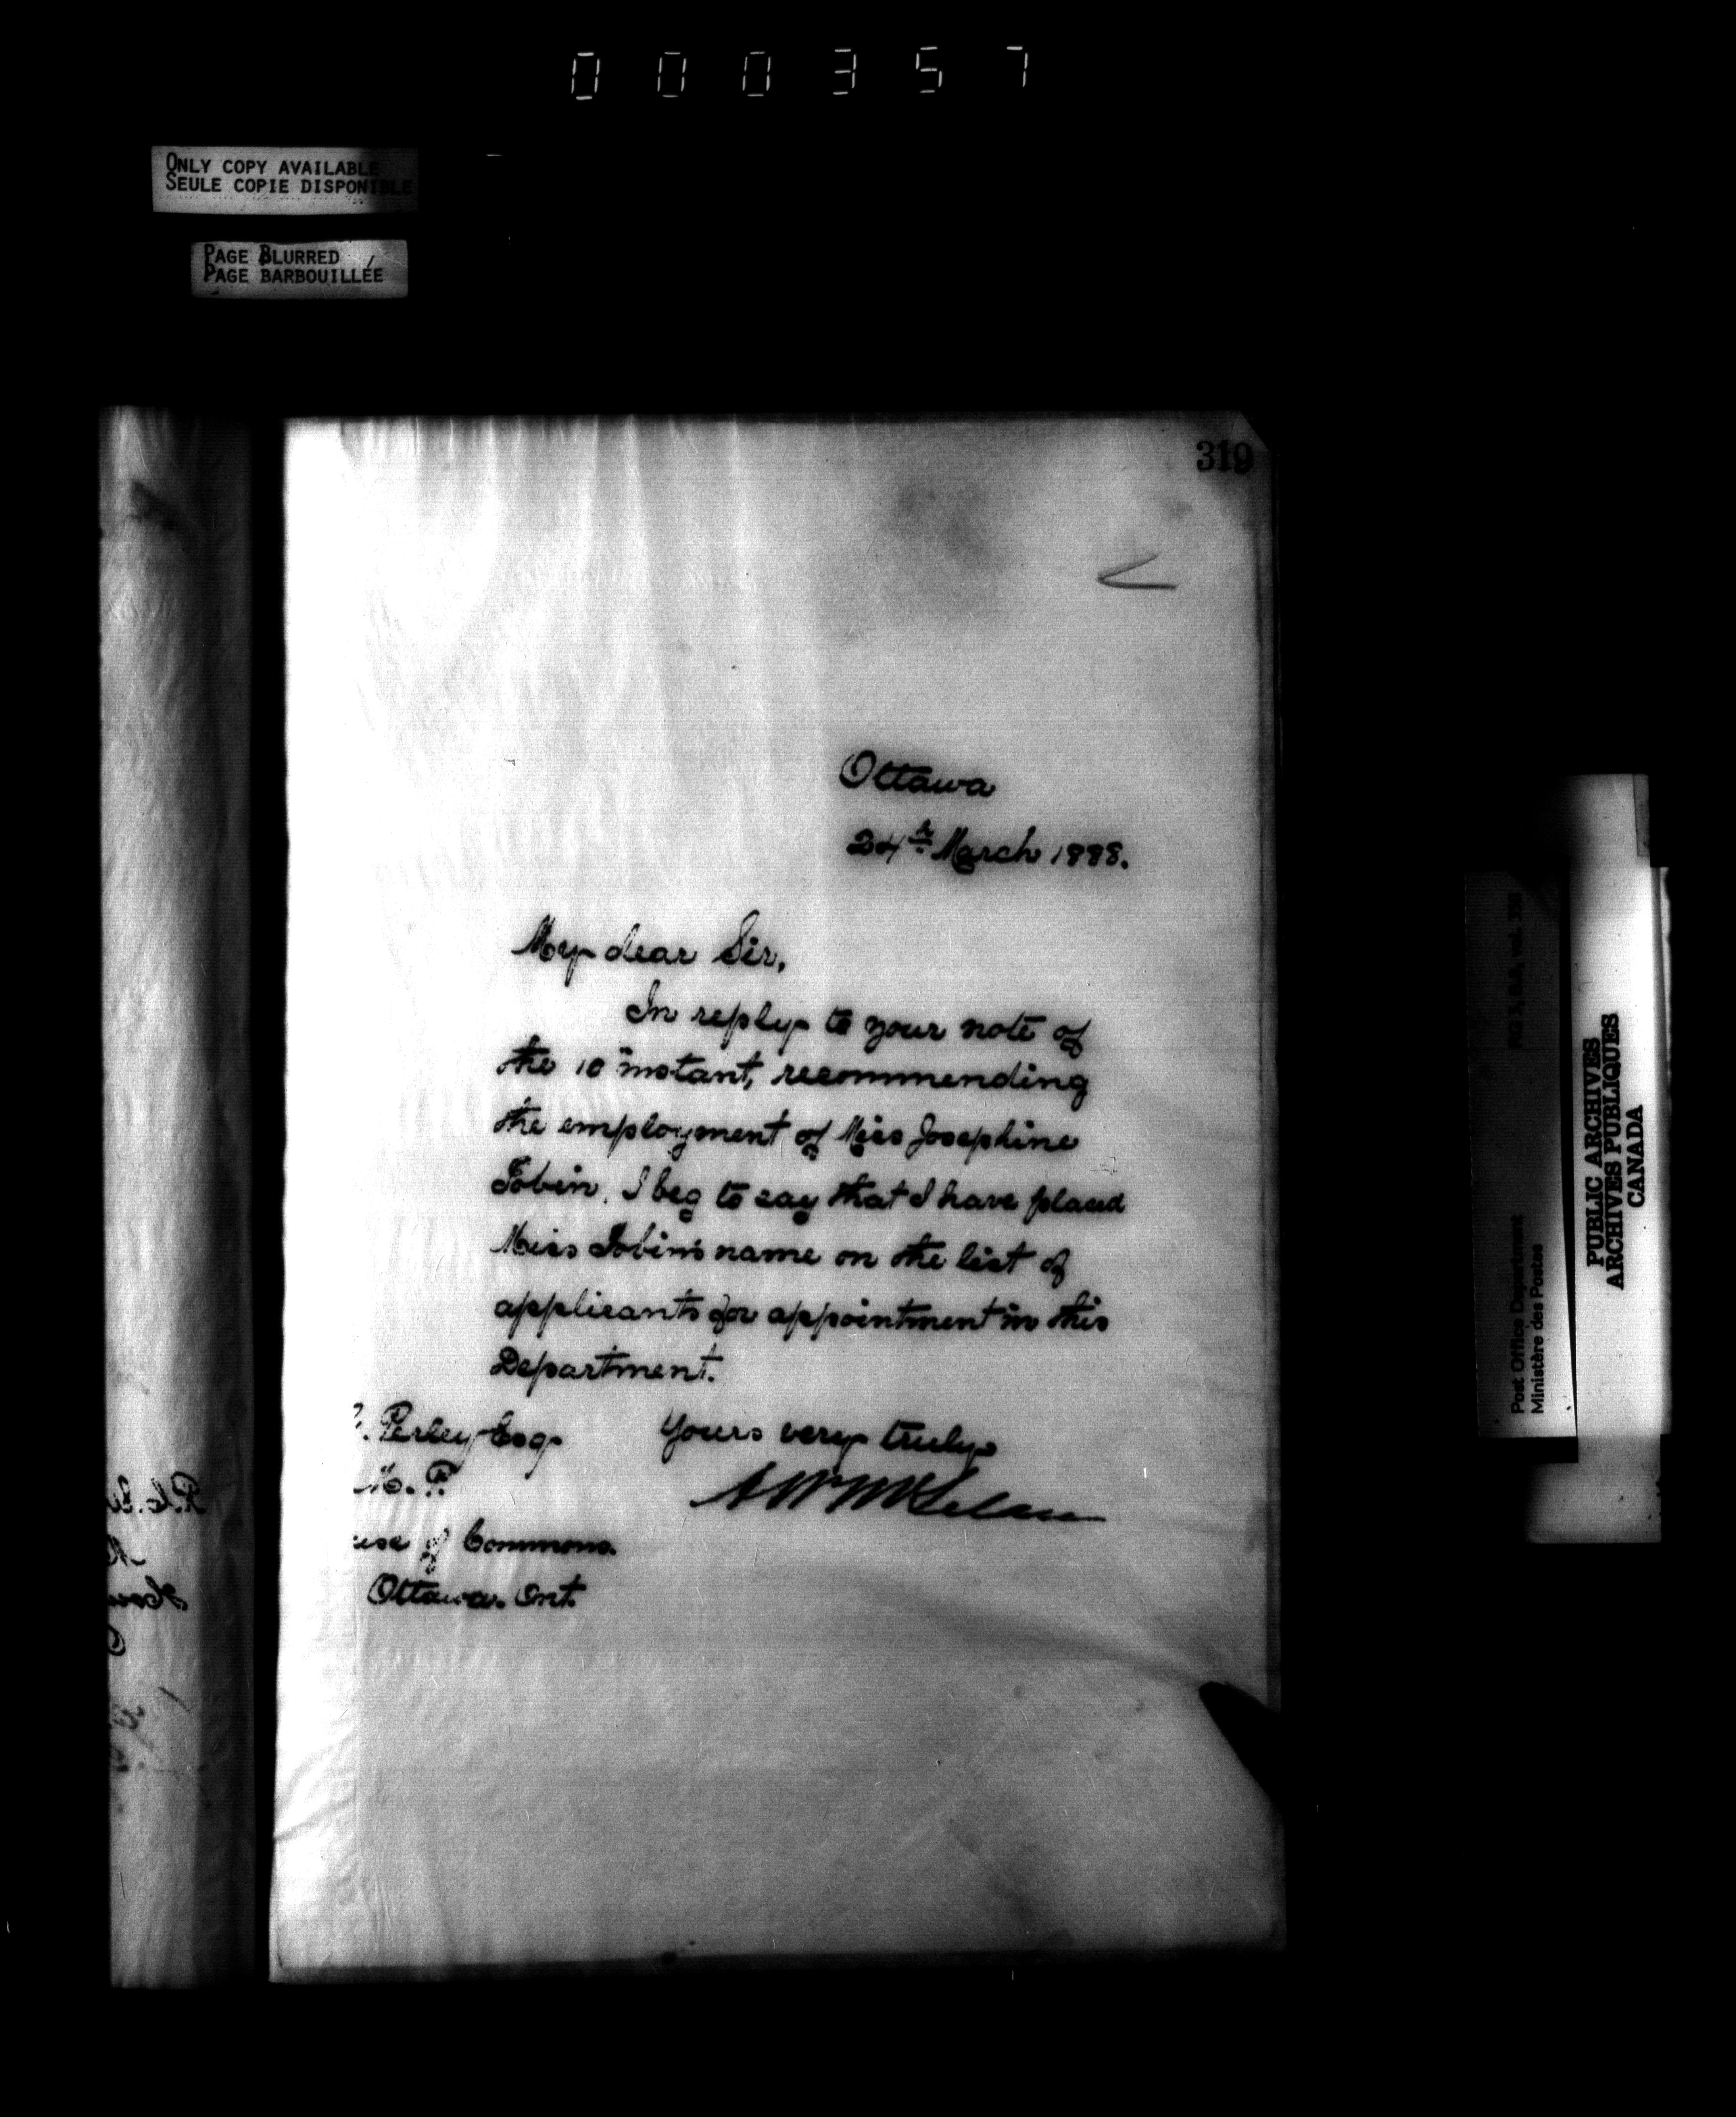 000357
ONLY COPY AVAILABLE
SEULE COPIE DISPONIBLE
PAGE BLURRED
PAGE BARBOUILLÉE
319
Ottawa
24th March 1888.
My dear Sir,
In reply to your note of
the 10" instant, recommending
the employment of Miss Josephine
Tobin, I beg to say that I have placed
Miss Tobin's name on the list of
applicants for appointment in this
Department.
Yours very truly
AWMcLelan
. Perley Esq.
M. P.
use of Commons.
Ottawa. Ont.
RG 3, D.6, vol. 330
Post Office Department
Ministère des Postes
PUBLIC ARCHIVES
ARCHIVES PUBLIQUES
CANADA